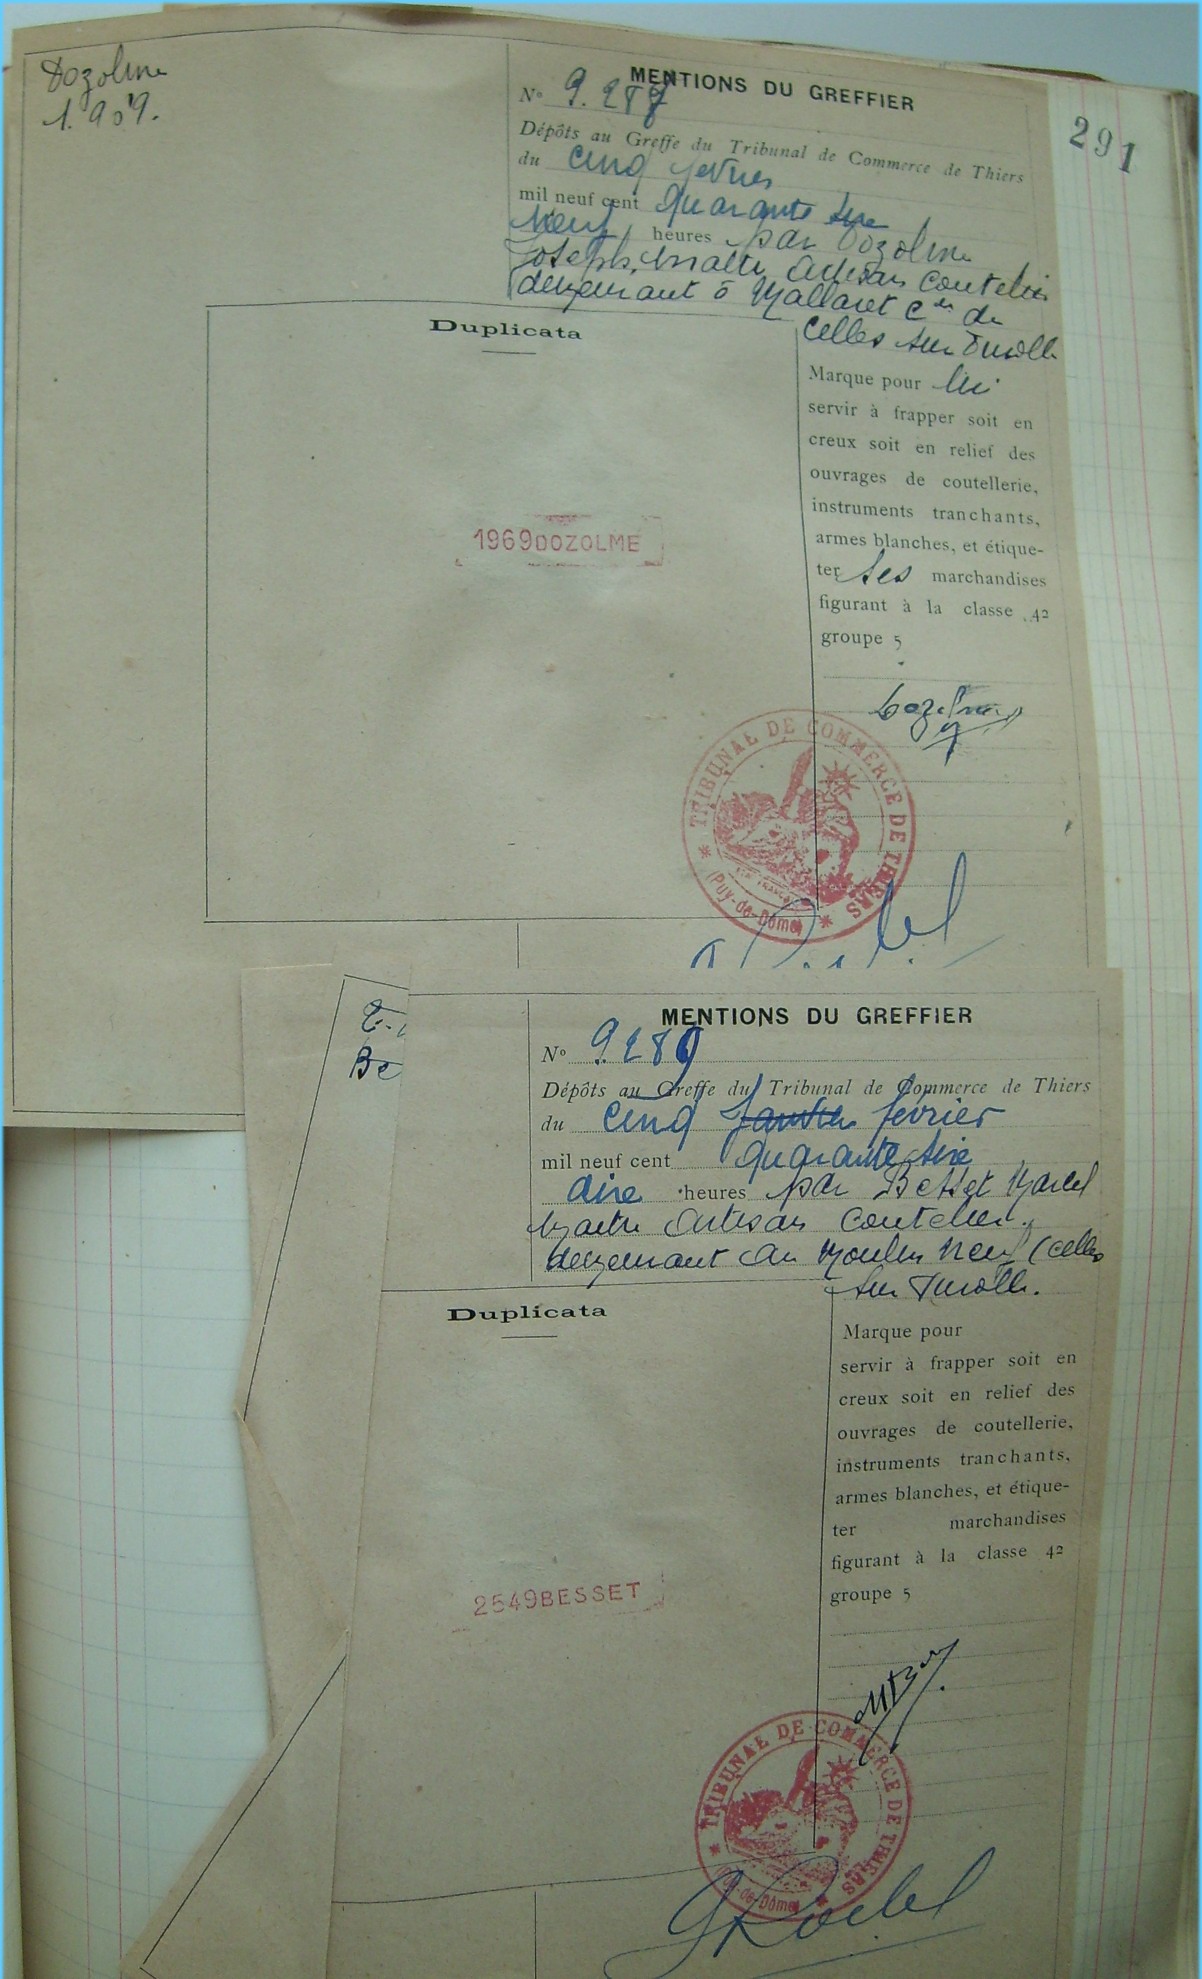 Dozolme
1.909.
MENTIONS DU GREFFIER
N° 9.287
Dépôts au Greffe du Tribunal de Commerce de Thiers
du cinq février
mil neuf cent quarante sixe
neuf heures par Dozolme
Joseph, maitre artisan coutelier
demeurant à Mallaret cne de
celles sur Durolle
291
Duplicata
1969DOZOLME
Marque pour lui
servir à frapper soit en
creux soit en relief des
ouvrages de coutellerie,
instruments tranchants,
armes blanches, et étique-
ter ses marchandises
figurant à la classe 42
groupe 5
Dozolme
TRIBUNAL DE COMMERCE DE THIERS
(Puy-de-Dôme)
Be
MENTIONS DU GREFFIER
N° 9289
Dépôts au Greffe du Tribunal de Commerce de Thiers
du cinq janvier février
mil neuf cent quarante sixe
dixe heures par Besset Marcel
maitre artisan coutelier.
demeurant au Moulin Neuf (celles
sur Durolle.
Duplicata
2549BESSET
Marque pour
servir à frapper soit en
creux soit en relief des
ouvrages de coutellerie,
instruments tranchants,
armes blanches, et étique-
ter marchandises
figurant à la classe 42
groupe 5
TRIBUNAL DE COMMERCE DE THIERS
(Puy-de-Dôme)